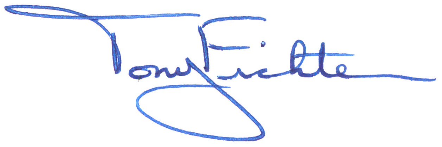 Tony Fichte